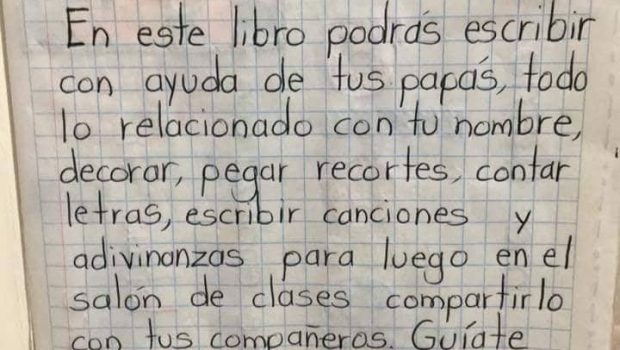 En este libro podrás escribir
con ayuda de tus papás, todo
lo relacionado con tu nombre,
decorar, pegar recortes, contar
letras, escribir canciones y
adivinanzas para luego en el
salón de clases compartirlo
con tus compañeros. Guíate